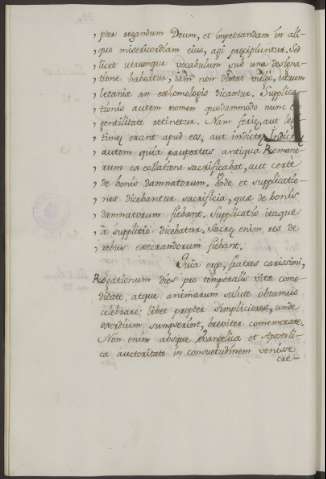 „ pter rogandum Deum, et impetrandam in ali-
„ quo misericordiam ejus, agi præcipiuntur. Sed
„ licet utrumque vocabulum sub una
„ tione habeatur, utrum
„ Letania an exomologesis dicantur. Supplica-
„ tionis autem nomen quodammodo nunc e
„ gentilitate retinetur. Nam feriæ, aut legi-
„ timæ erant apud eos, aut indictæ. Indictæ
„ autem quia paupertas antiqua Romano-
„ rum ex collatione sacrificabat, aut certe
„ de bonis damnatorum. Unde et supplicatio-
„ nes dicebantur sacrificia, quæ de bonis
„ damnatorum fiebant. Supplicatio itaque
„ a supplicio dicebatur. Sacræ enim res de
„ rebus execrandorum fiebant.
Quia ergo, fratres carissimi,
Rogationum dies pro temporalis vitæ come-
ditate, atque animarum salute optamus
celebrare: libet propter simpliciores, unde
exordium sumpserint, breviter commemorare.
Non enim absque Evangelica et Apostoli-
ca auctoritate in consuetudinem venisse
cre-